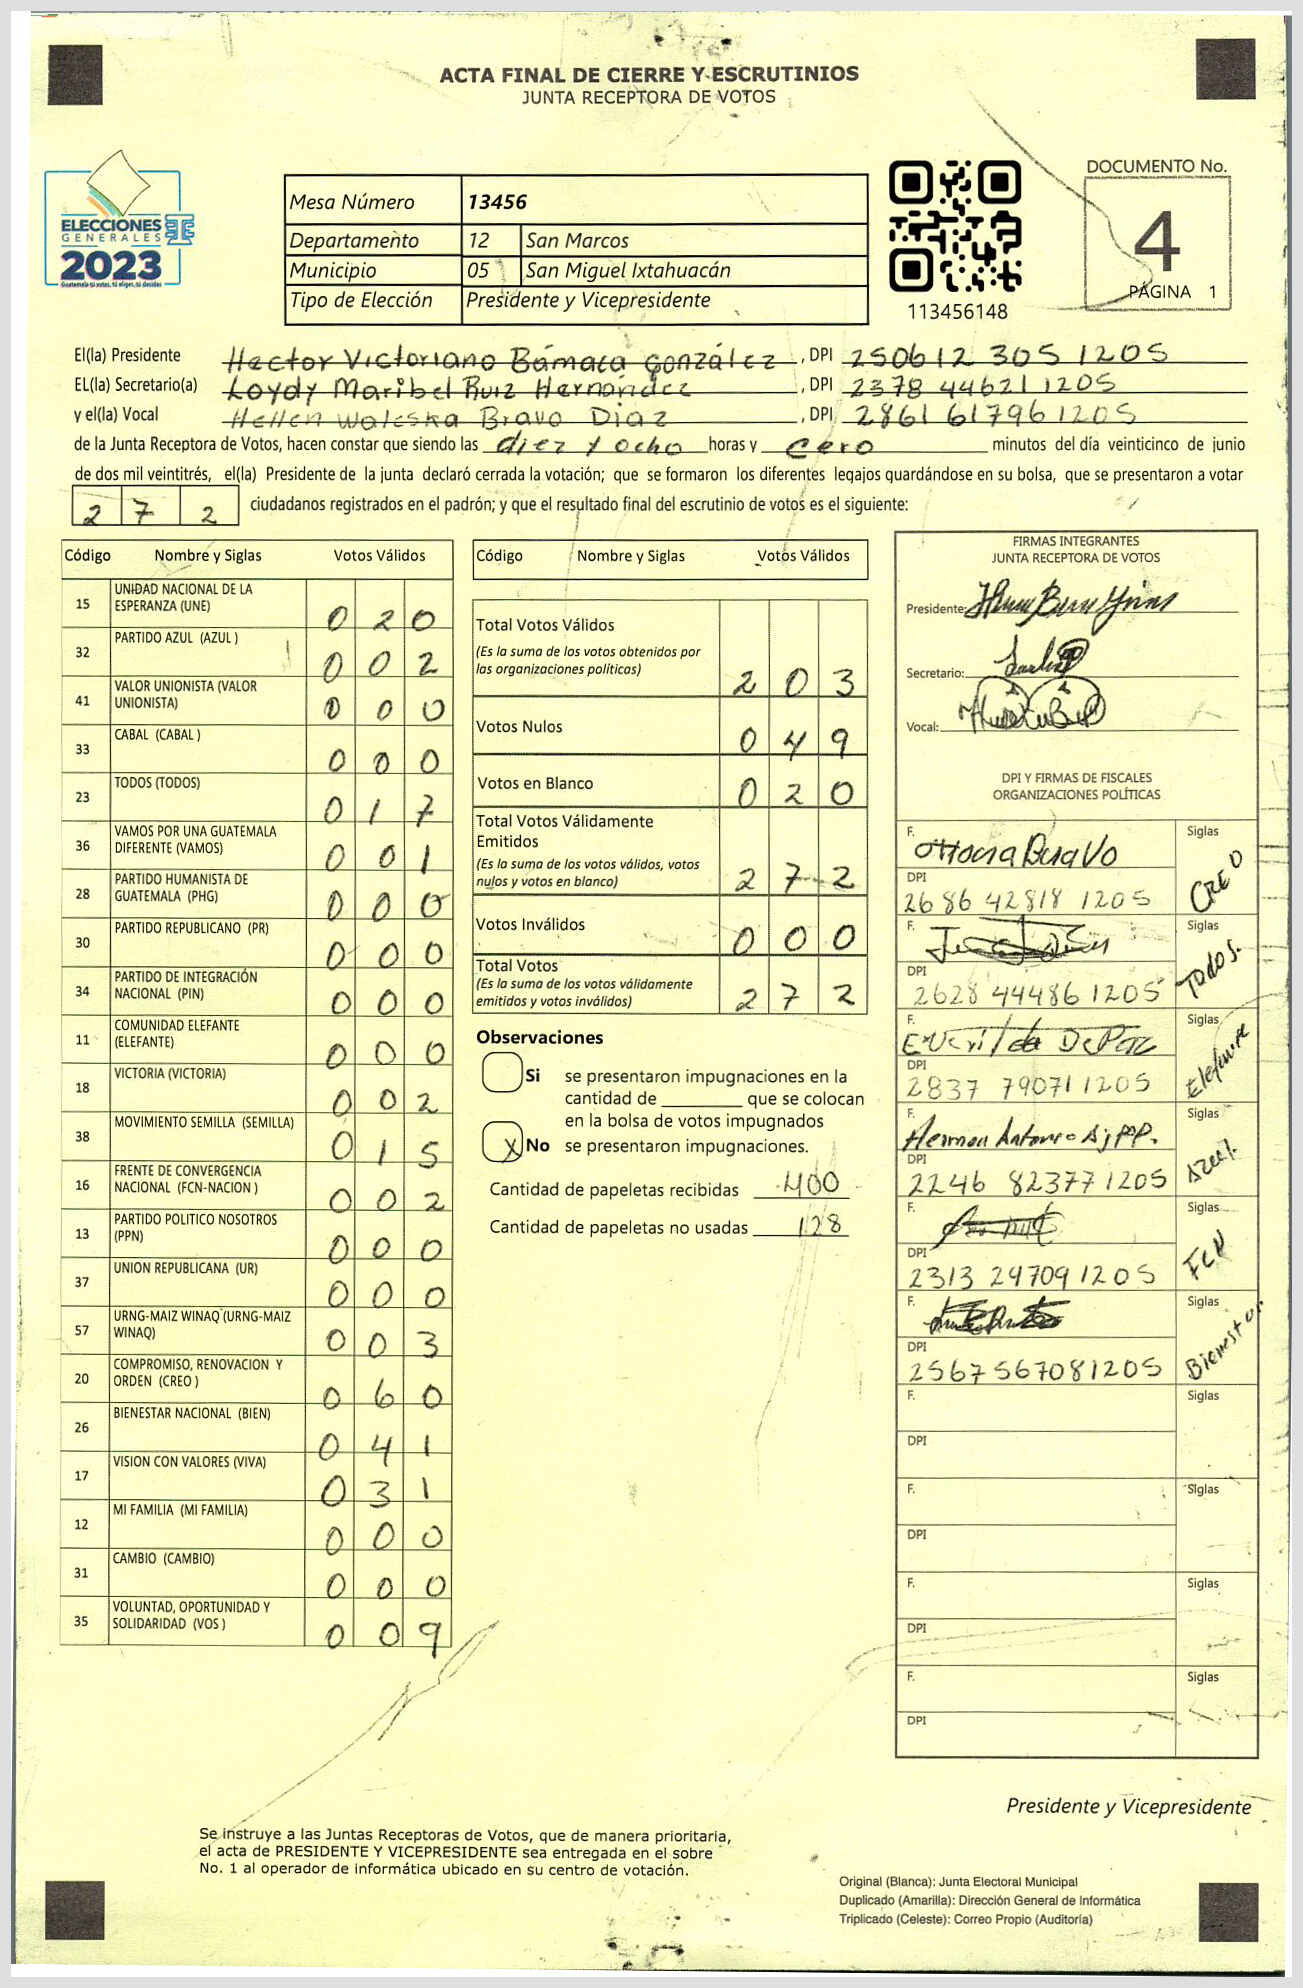 ACTA FINAL DE CIERRE Y ESCRUTINIOS
JUNTA RECEPTORA DE VOTOS
ELECCIONES
GENERALES
2023
Guatemala tú votas, tú eliges, tú decides
Mesa Número 13456
Departamento 12 San Marcos
Municipio 05 San Miguel Ixtahuacán
Tipo de Elección Presidente y Vicepresidente
113456148
DOCUMENTO No.
4
PÁGINA 1
El(la) Presidente Hector Victoriano Bámaca González , DPI 250612 305 1205
EL(la) Secretario(a) Loydy Maribel Ruiz Hernández , DPI 2378 44621 1205
y el(la) Vocal Hellen Waleska Bravo Diaz , DPI 2861 61796 1205
de la Junta Receptora de Votos, hacen constar que siendo las diez y ocho horas y cero minutos del día veinticinco de junio
de dos mil veintitrés, el(la) Presidente de la junta declaró cerrada la votación; que se formaron los diferentes legajos guardándose en su bolsa, que se presentaron a votar
2 7 2 ciudadanos registrados en el padrón; y que el resultado final del escrutinio de votos es el siguiente:
Código Nombre y Siglas Votos Válidos
15 UNIDAD NACIONAL DE LA ESPERANZA (UNE) 0 2 0
32 PARTIDO AZUL (AZUL ) 0 0 2
41 VALOR UNIONISTA (VALOR UNIONISTA) 0 0 0
33 CABAL (CABAL ) 0 0 0
23 TODOS (TODOS) 0 1 7
36 VAMOS POR UNA GUATEMALA DIFERENTE (VAMOS) 0 0 1
28 PARTIDO HUMANISTA DE GUATEMALA (PHG) 0 0 0
30 PARTIDO REPUBLICANO (PR) 0 0 0
34 PARTIDO DE INTEGRACIÓN NACIONAL (PIN) 0 0 0
11 COMUNIDAD ELEFANTE (ELEFANTE) 0 0 0
18 VICTORIA (VICTORIA) 0 0 2
38 MOVIMIENTO SEMILLA (SEMILLA) 0 1 5
16 FRENTE DE CONVERGENCIA NACIONAL (FCN-NACION ) 0 0 2
13 PARTIDO POLITICO NOSOTROS (PPN) 0 0 0
37 UNION REPUBLICANA (UR) 0 0 0
57 URNG-MAIZ WINAQ (URNG-MAIZ WINAQ) 0 0 3
20 COMPROMISO, RENOVACION Y ORDEN (CREO ) 0 6 0
26 BIENESTAR NACIONAL (BIEN) 0 4 1
17 VISION CON VALORES (VIVA) 0 3 1
12 MI FAMILIA (MI FAMILIA) 0 0 0
31 CAMBIO (CAMBIO) 0 0 0
35 VOLUNTAD, OPORTUNIDAD Y SOLIDARIDAD (VOS ) 0 0 9
Código Nombre y Siglas Votos Válidos
Total Votos Válidos
(Es la suma de los votos obtenidos por
las organizaciones políticas) 2 0 3
Votos Nulos 0 4 9
Votos en Blanco 0 2 0
Total Votos Válidamente
Emitidos
(Es la suma de los votos válidos, votos
nulos y votos en blanco) 2 7 2
Votos Inválidos 0 0 0
Total Votos
(Es la suma de los votos válidamente
emitidos y votos inválidos) 2 7 2
Observaciones
Si se presentaron impugnaciones en la
cantidad de ________ que se colocan
en la bolsa de votos impugnados
X No se presentaron impugnaciones.
Cantidad de papeletas recibidas 400
Cantidad de papeletas no usadas 128
FIRMAS INTEGRANTES
JUNTA RECEPTORA DE VOTOS
Presidente:
Secretario:
Vocal:
DPI Y FIRMAS DE FISCALES
ORGANIZACIONES POLÍTICAS
F. Siglas CREO
DPI 2686 42818 1205
F. Siglas Todos.
DPI 2628 44486 1205
F. Siglas Elefante
DPI 2837 79071 1205
F. Siglas Azul.
DPI 2246 82377 1205
F. Siglas FCN
DPI 2313 24709 1205
F. Siglas Bienestar
DPI 2567567081205
F. Siglas
DPI
F. Siglas
DPI
F. Siglas
DPI
F. Siglas
DPI
Presidente y Vicepresidente
Se instruye a las Juntas Receptoras de Votos, que de manera prioritaria,
el acta de PRESIDENTE Y VICEPRESIDENTE sea entregada en el sobre
No. 1 al operador de informática ubicado en su centro de votación.
Original (Blanca): Junta Electoral Municipal
Duplicado (Amarilla): Dirección General de Informática
Triplicado (Celeste): Correo Propio (Auditoría)